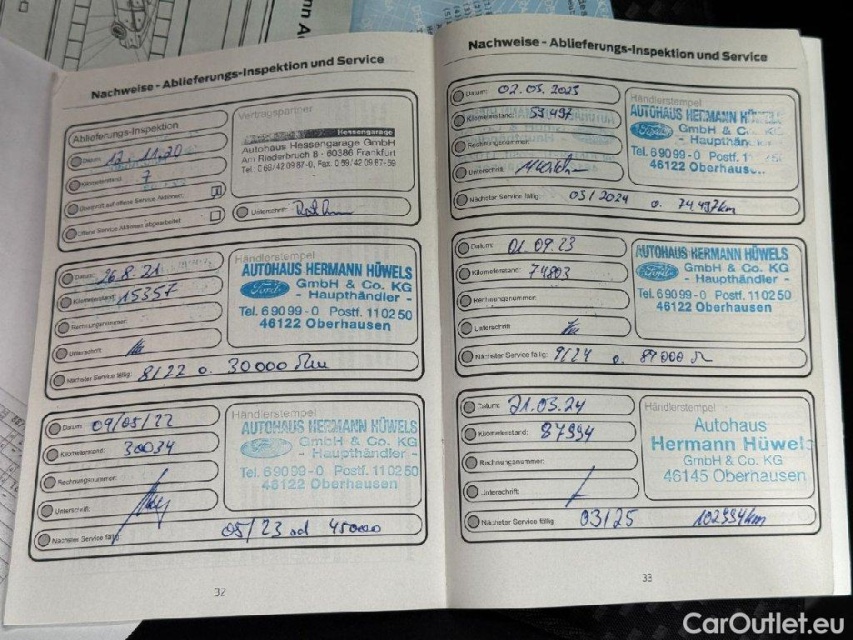 Nachweise - Ablieferungs-Inspektion und Service
Ablieferungs-Inspektion
Datum: 12.11.20
Kilometerstand: 7
Überprüft auf offene Service Aktionen:
Offene Service Aktionen abgearbeitet
Vertragspartner
Hessengarage
Autohaus Hessengarage GmbH
Am Riederbruch 8 - 60386 Frankfurt
Unterschrift:
Datum: 26.8.21
Kilometerstand: 15357
Rechnungsnummer:
Unterschrift:
Händlerstempel
AUTOHAUS HERMANN HÜWELS
Ford
GmbH & Co. KG
- Haupthändler -
Tel. 6 90 99 - 0 Postf. 11 02 50
46122 Oberhausen
Nächster Service fällig: 8/22 o. 30000
Datum: 09/05/22
Kilometerstand: 30034
Rechnungsnummer:
Unterschrift:
Händlerstempel
AUTOHAUS HERMANN HÜWELS
Ford
GmbH & Co. KG
- Haupthändler -
Tel. 6 90 99 - 0 Postf. 11 02 50
46122 Oberhausen
Nächster Service fällig: 05/23 od 45000
32
Nachweise - Ablieferungs-Inspektion und Service
Datum: 02.03.2023
Kilometerstand: 59497
Rechnungsnummer:
Unterschrift:
Händlerstempel
AUTOHAUS HERMANN
Ford
GmbH & Co.
- Haupthän
Tel. 6 90 99 - 0 Postf. 1
46122 Oberhaus
Nächster Service fällig: 03/2024 o. 74497km
Datum: 01.09.23
Kilometerstand: 74803
Rechnungsnummer:
Unterschrift:
AUTOHAUS HERMANN HÜWELS
Ford
GmbH & Co. KG
- Haupthändler -
Tel. 6 90 99 - 0 Postf. 11 02 50
46122 Oberhausen
Nächster Service fällig: 9/24 o. 89000
Datum: 21.03.24
Kilometerstand: 87994
Rechnungsnummer:
Unterschrift:
Händlerstempel
Autohaus
Hermann Hüwel
GmbH & Co. KG
46145 Oberhausen
Nächster Service fällig: 03/25 102994km
33
CarOutlet.eu